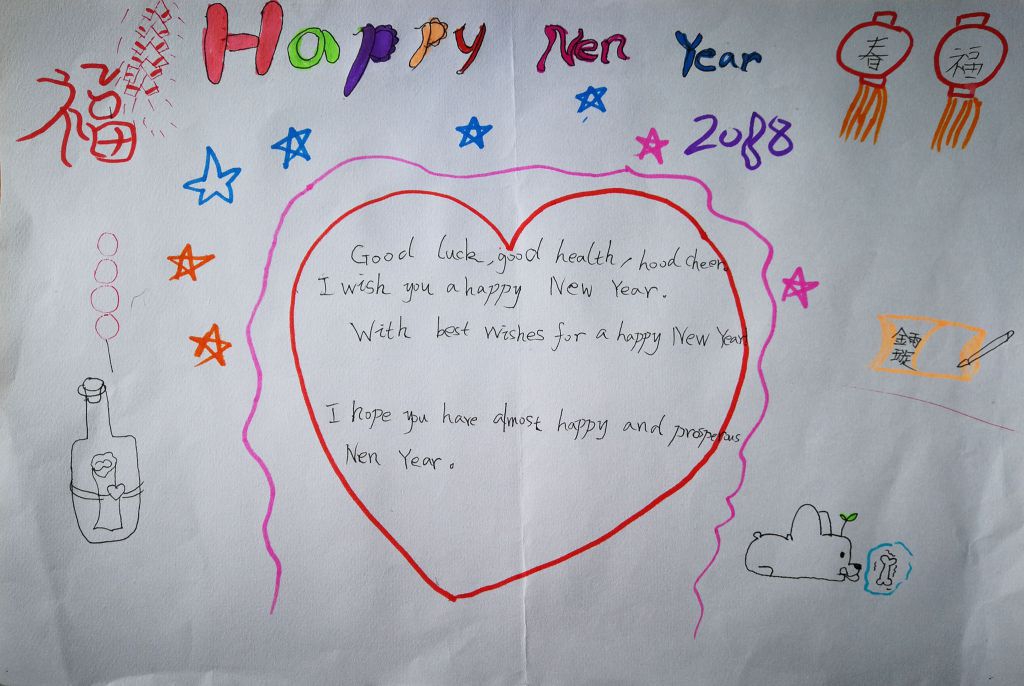 Happy Nen Year
福
春
福
2088
Good luck, good health, hood cheer.
I wish you a happy New Year.
With best wishes for a happy New Year
金雨
璇
I hope you have almost happy and prosperous
Nen Year.